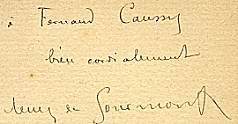 à Fernand Caussy
bien cordialement
Remy de Gourmont